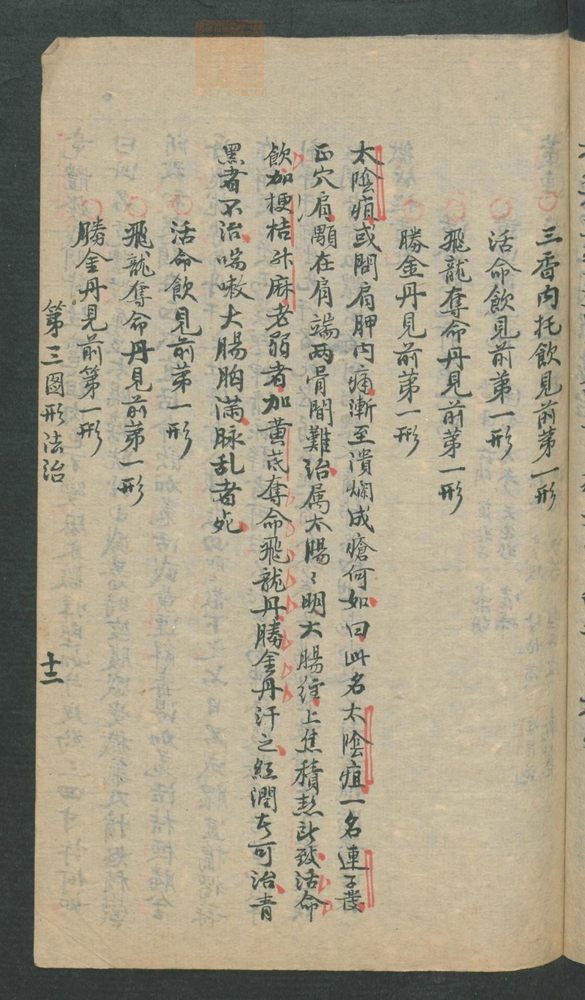 三香内托飲見前第一形
活命飲見前第一形
飛龍奪命丹見前第一形
勝金丹見前第一形
太陰疽或問肩胛内痛漸至潰爛成瘡何如曰此名太陰疽一名連子發
正穴肩顒在肩端両骨間難治属太陽〻明大腸經上焦積熱所致活命
飲加梗桔升麻老弱者加黄芪奪命飛龍丹勝金丹汗之紅潤者可治青
黑者不治喘嗽大腸胸滿脉乱者死
活命飲見前第一形
飛龍奪命丹見前第一形
勝金丹見前第一形
第三圖形法治
十二